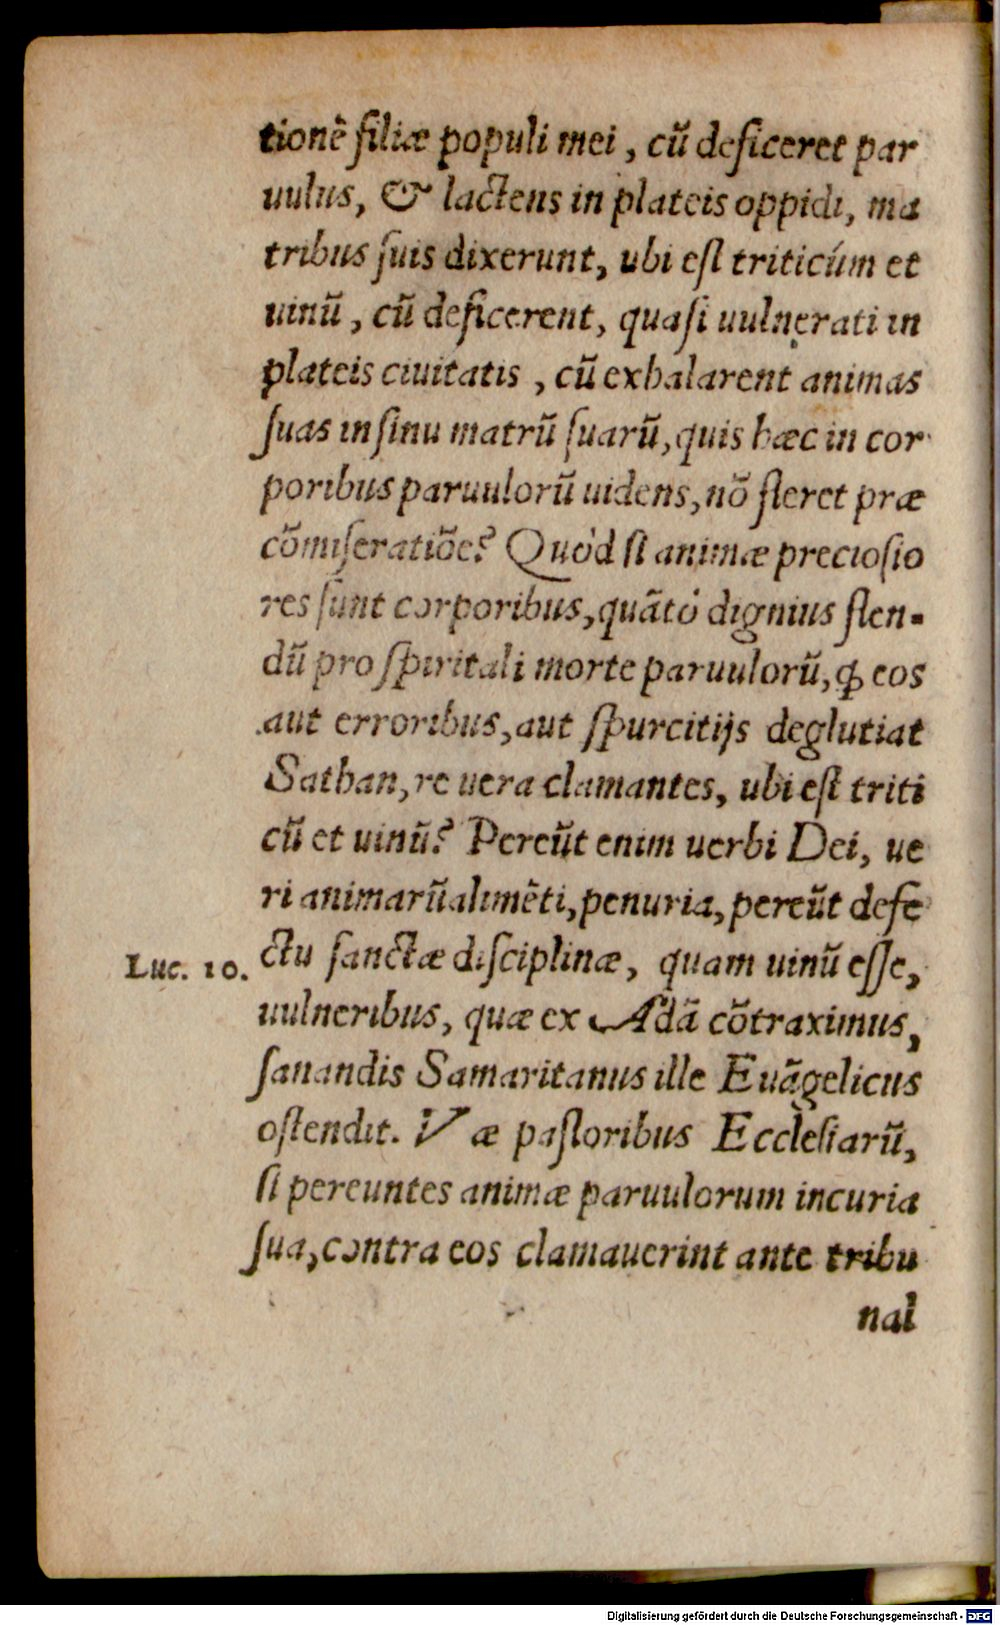 tionẽ filiæ populi mei, cũ deficeret par
uulus, & lactens in plateis oppidi, ma
tribus suis dixerunt, ubi est triticúm et
uinũ, cũ deficerent, quasi uulnerati in
plateis ciuitatis, cũ exhalarent animas
suas in sinu matrũ suarũ, quis hæc in cor
poribus paruulorũ uidens, nõ fleret præ
cõmiseratiõe? Quòd si animæ preciosio
res sunt corporibus, quãtó dignius flen-
dũ pro spiritali morte paruulorũ, ꝙ eos
aut erroribus, aut spurcitijs deglutiat
Sathan, re uera clamantes, ubi est triti
cũ et uinũ? Pereũt enim uerbi Dei, ue
ri animarũ alimẽti, penuria, pereũt defe
Luc. 10. ctu sanctæ disciplinæ, quam uinũ esse,
uulneribus, quæ ex Adã cõtraximus,
sanandis Samaritanus ille Euãgelicus
ostendit. Væ pastoribus Ecclesiarũ,
si pereuntes animæ paruulorum incuria
sua, contra eos clamauerint ante tribu
nal
Digitalisierung gefördert durch die Deutsche Forschungsgemeinschaft - DFG